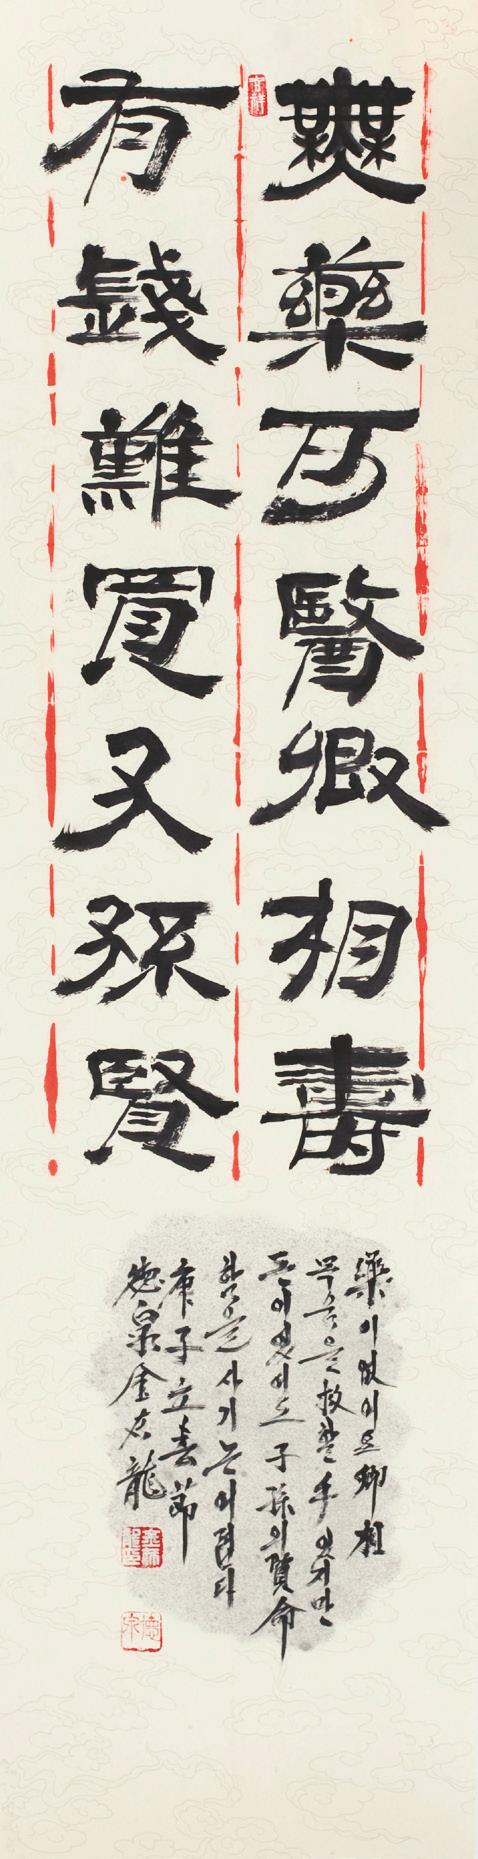 無藥可醫卿相壽
有錢難買子孫賢
吉祥
藥이없이도卿相
목숨을救할手있지만
돈이있어도子孫의賢命
함을사기는어렵다
庚子立春節
德泉金龍
德泉